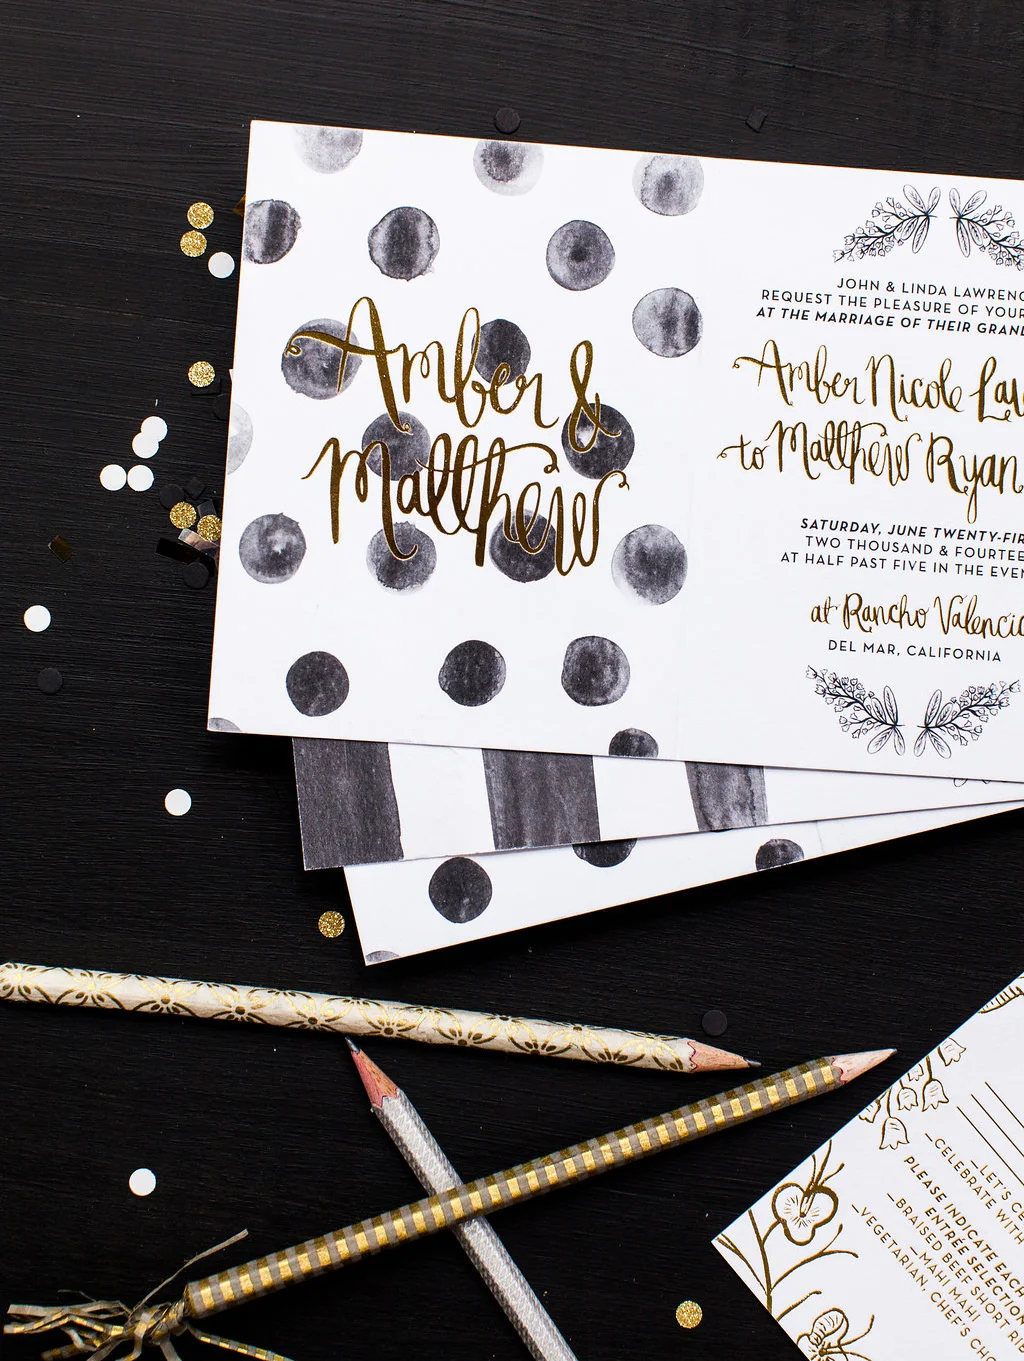 Amber &
Matthew
JOHN & LINDA LAWRENC
REQUEST THE PLEASURE OF YOUR
AT THE MARRIAGE OF THEIR GRAND
Amber Nicole Law
to Matthew Ryan
SATURDAY, JUNE TWENTY-FIR
TWO THOUSAND & FOURTEE
AT HALF PAST FIVE IN THE EVEN
at Rancho Valencia
DEL MAR, CALIFORNIA
_LET'S CE
_CELEBRATE WITH
PLEASE INDICATE EACH
ENTRÉE SELECTION
_BRAISED BEEF SHORT RIB
_MAHI MAHI
_VEGETARIAN, CHEF'S CHO